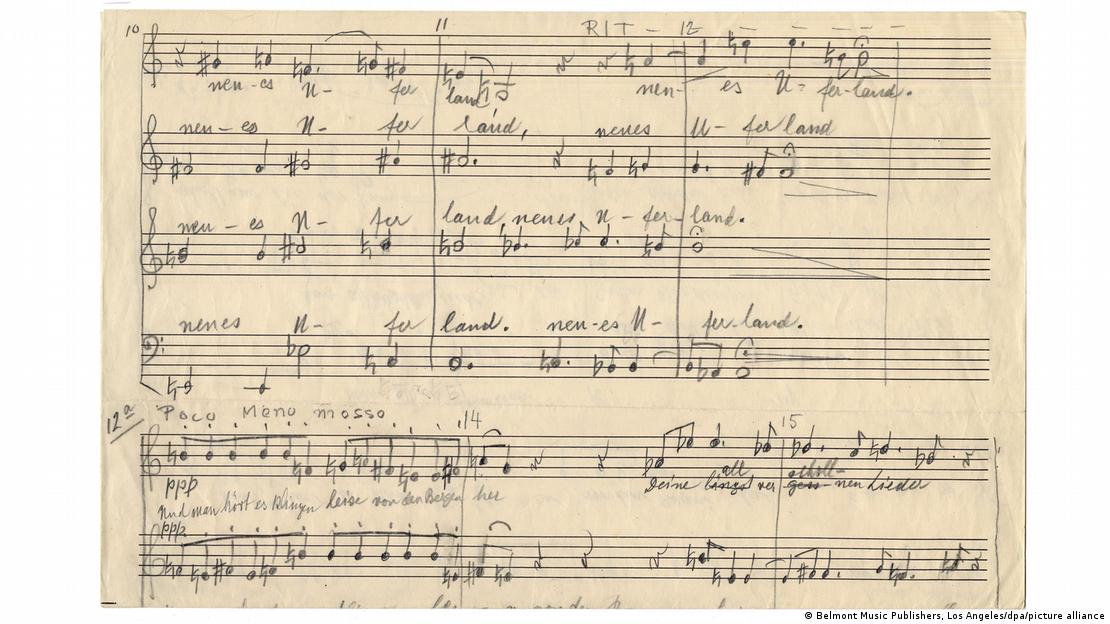 10 11 RIT - 12
neu-es U- fer land neu- es U- fer-land.
neu-es U- fer land, neues U- fer land
neu-es U- fer land, neues U-fer-land.
neues U- fer land. neu-es U- fer-land.
12a Poco Meno mosso 14 15
ppp
Und man hört es klingen leise von den Bergen her
all
Deine längst ver nen Lieder
ppp
© Belmont Music Publishers, Los Angeles/dpa/picture alliance